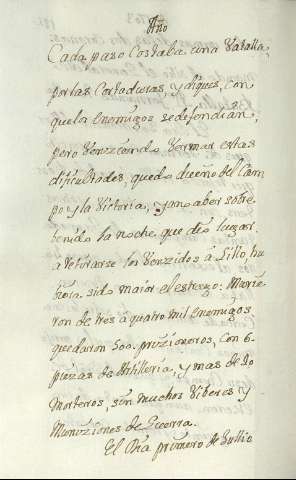 Año
Cada paso Costaba una Vatalla,
por las Cortaduras, y diques, con
que los enemigos se defendian,
pero Venziendo Vermar estas
dificultades, quedo dueño del Cam
po y la Victoria, y a no aber sobre
benido la noche, que dió lugar,
a retirarse los Venzidos á Lillo, hu
biera sido maior el estrago: Murie
ron de tres á quatro mil enemigos
quedaron 500. prizioneros, con 6.
piezas de Artilleria, y mas de 20
Morteros, sin muchos Viberes y
Muniziones de Guerra.
El Dia primero de Jullio